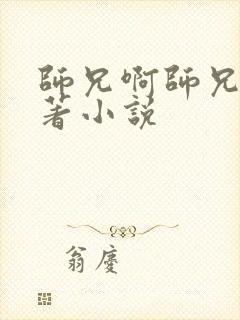 師兄啊師兄
著小説
翁慶